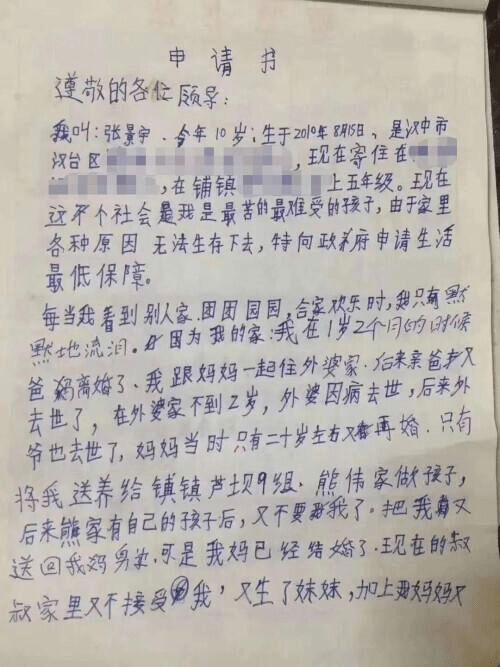 申请书
尊敬的各位领导:
我叫:张景宇、今年10岁;生于2010年8月15日、是汉中市
汉台区,现在寄住在
,在铺镇上五年级。现在
这个社会是我是最苦的最难受的孩子,由于家里
各种原因无法生存下去,特向政府申请生活
最低保障。
每当我看到别人家.团团园园,合家欢乐时,我只有默
默地流泪。因为我的家:我在1岁2个月的时候
爸妈离婚了、我跟妈妈一起住外婆家.后来亲爸才又
去世了,在外婆家不到2岁,外婆因病去世,后来外
爷也去世了,妈妈当时只有二十岁左右又再婚.只有
将我送养给镇芦坝9组.熊伟家做孩子,
后来熊家有自己的孩子后,又不要我了.把我又
送回我妈.可是我妈已经结婚了.现在的叔
叔家里又不接受我,又生了妹妹,加上我妈妈又